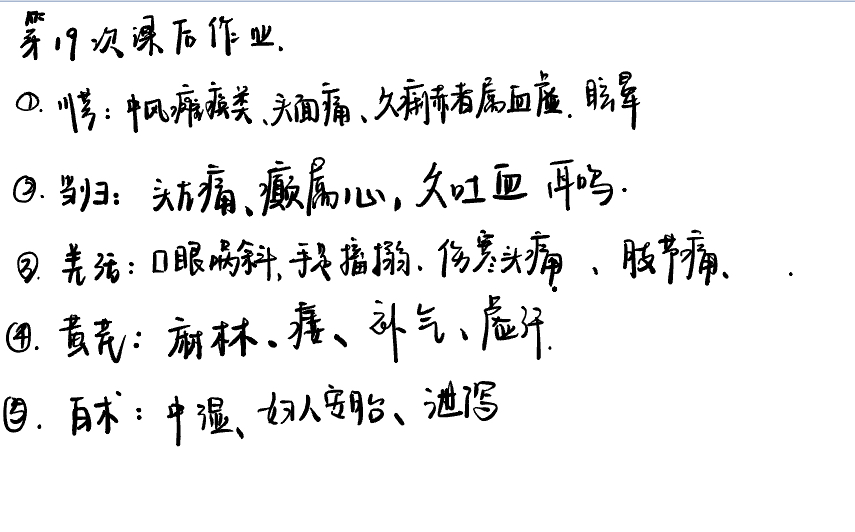 第19次课后作业.
①. 川芎：中风瘫痪类、头面痛、久痢赤者属血虚. 眩晕
②. 当归：头左痛、癫属心, 久吐血 耳鸣.
③. 羌活：口眼㖞斜, 手足搐搦. 伤寒头痛、肢节痛、 .
④. 黄芪：麻木、痿、补气、虚汗.
⑤. 白术：中湿、妇人安胎、泄泻